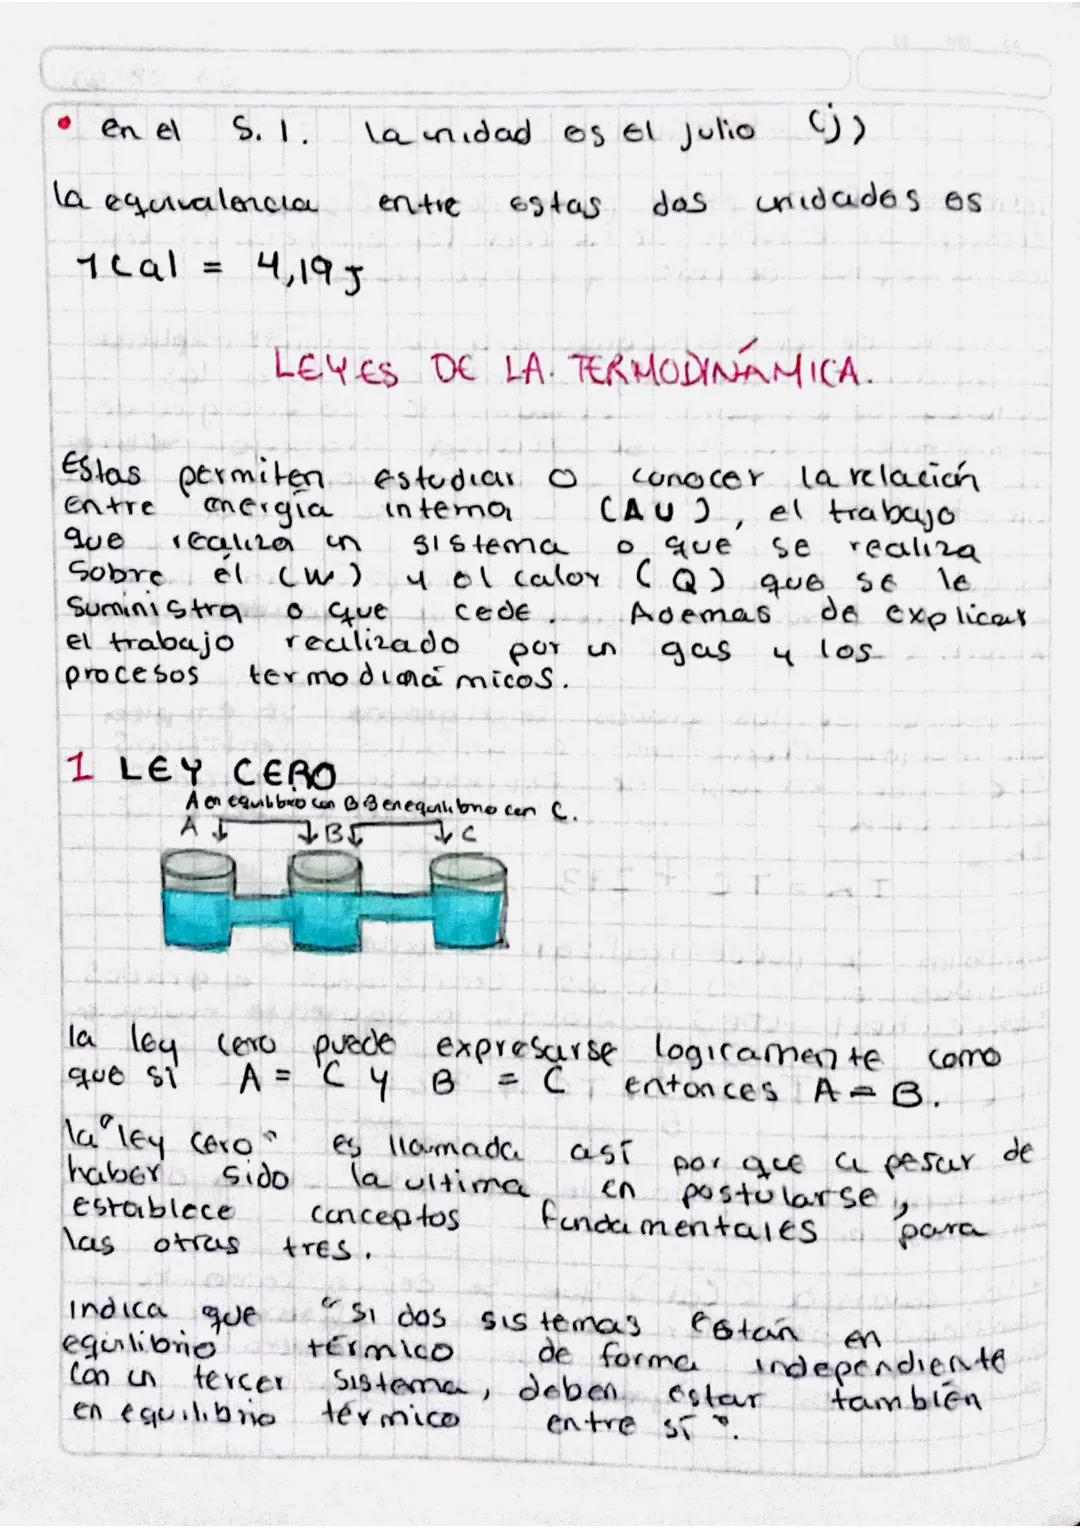 • en el S. I. la unidad es el julio (j)
la equivalencia entre estas dos unidades es
1 cal = 4,19 J
LEYES DE LA TERMODINÁMICA.
Estas permiten estudiar o conocer la relación
entre energía interna (ΔU), el trabajo
que realiza un sistema o que se realiza
sobre él (W) y el calor (Q) que se le
suministra o que cede. Ademas de explicar
el trabajo realizado por un gas y los
procesos termodinámicos.
1 LEY CERO
A en equilibrio con B B en equilibrio con C.
A B C
la ley cero puede expresarse logicamente como
que si A = C y B = C entonces A = B.
la "ley cero" es llamada así por que a pesar de
haber sido la ultima en postularse,
establece conceptos fundamentales para
las otras tres.
indica que "si dos sistemas están en
equilibrio térmico de forma independiente
con un tercer sistema, deben estar también
en equilibrio térmico entre sí".